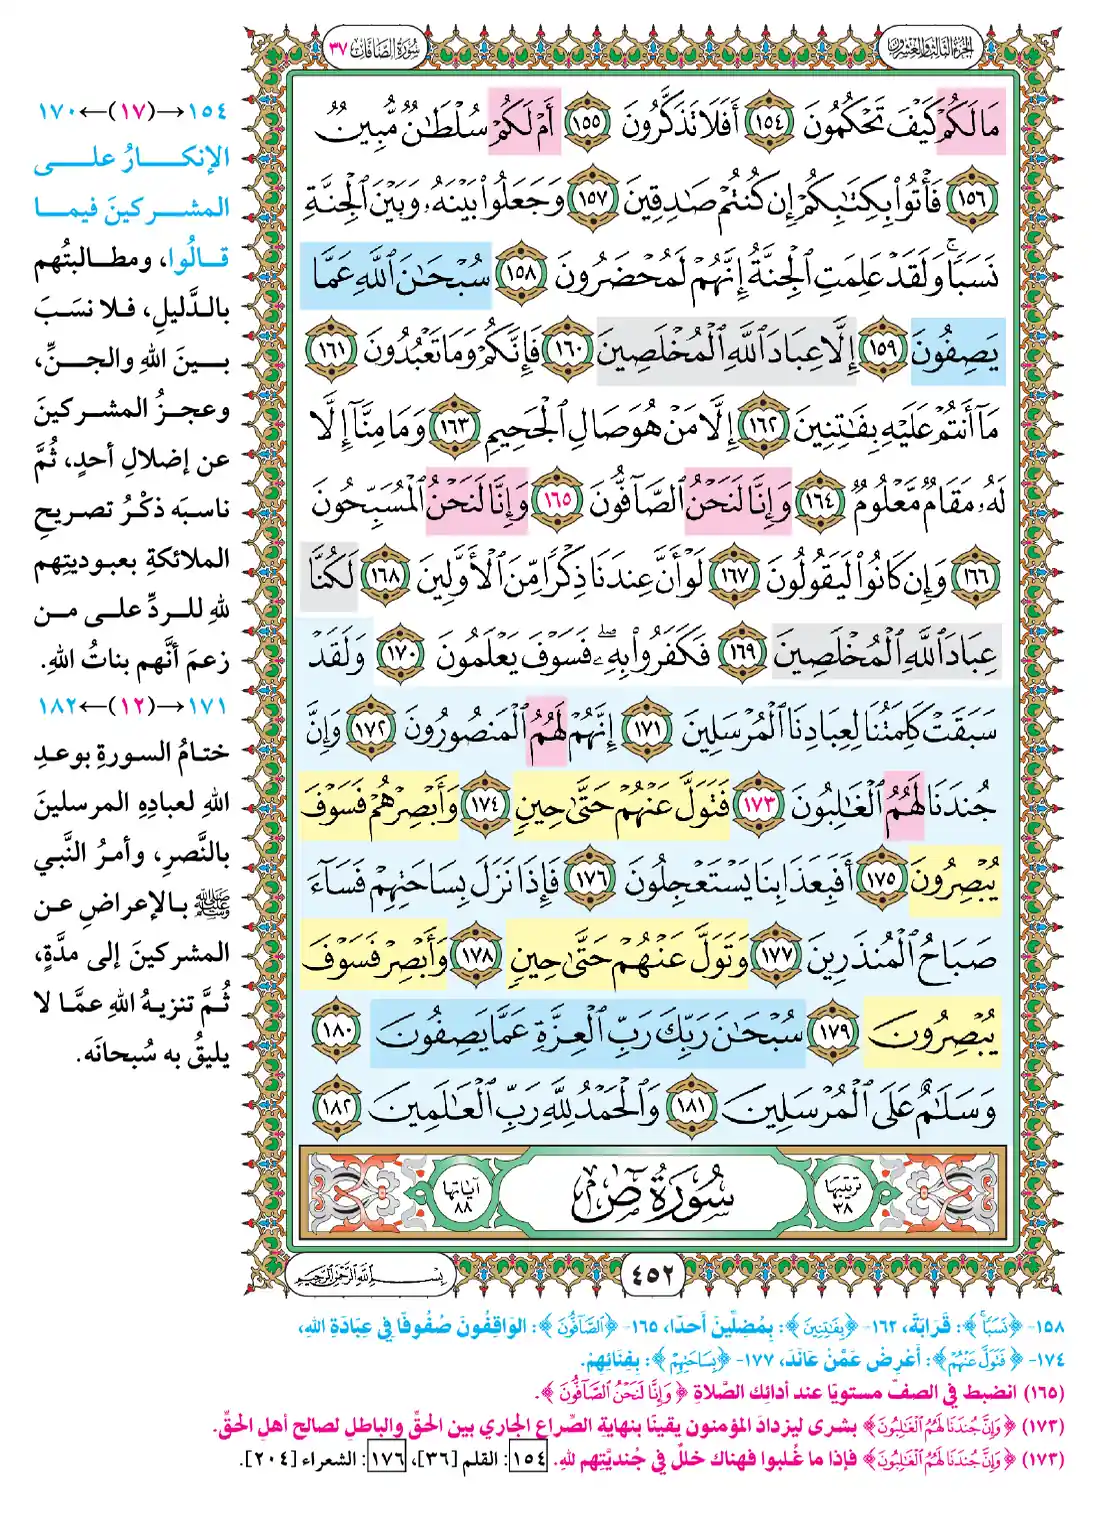 الجزء الثالث والعشرون
سورة الصافات ٣٧
مَا لَكُمْ كَيْفَ تَحْكُمُونَ ١٥٤ أَفَلَا تَذَكَّرُونَ ١٥٥ أَمْ لَكُمْ سُلْطَٰنٌ مُّبِينٌ
١٥٦ فَأْتُوا۟ بِكِتَٰبِكُمْ إِن كُنتُمْ صَٰدِقِينَ ١٥٧ وَجَعَلُوا۟ بَيْنَهُۥ وَبَيْنَ ٱلْجِنَّةِ
نَسَبًا ۚ وَلَقَدْ عَلِمَتِ ٱلْجِنَّةُ إِنَّهُمْ لَمُحْضَرُونَ ١٥٨ سُبْحَٰنَ ٱللَّهِ عَمَّا
يَصِفُونَ ١٥٩ إِلَّا عِبَادَ ٱللَّهِ ٱلْمُخْلَصِينَ ١٦٠ فَإِنَّكُمْ وَمَا تَعْبُدُونَ ١٦١
مَآ أَنتُمْ عَلَيْهِ بِفَٰتِنِينَ ١٦٢ إِلَّا مَنْ هُوَ صَالِ ٱلْجَحِيمِ ١٦٣ وَمَا مِنَّآ إِلَّا
لَهُۥ مَقَامٌ مَّعْلُومٌ ١٦٤ وَإِنَّا لَنَحْنُ ٱلصَّآفُّونَ ١٦٥ وَإِنَّا لَنَحْنُ ٱلْمُسَبِّحُونَ
١٦٦ وَإِن كَانُوا۟ لَيَقُولُونَ ١٦٧ لَوْ أَنَّ عِندَنَا ذِكْرًا مِّنَ ٱلْأَوَّلِينَ ١٦٨ لَكُنَّا
عِبَادَ ٱللَّهِ ٱلْمُخْلَصِينَ ١٦٩ فَكَفَرُوا۟ بِهِۦ ۖ فَسَوْفَ يَعْلَمُونَ ١٧٠ وَلَقَدْ
سَبَقَتْ كَلِمَتُنَا لِعِبَادِنَا ٱلْمُرْسَلِينَ ١٧١ إِنَّهُمْ لَهُمُ ٱلْمَنصُورُونَ ١٧٢ وَإِنَّ
جُندَنَا لَهُمُ ٱلْغَٰلِبُونَ ١٧٣ فَتَوَلَّ عَنْهُمْ حَتَّىٰ حِينٍ ١٧٤ وَأَبْصِرْهُمْ فَسَوْفَ
يُبْصِرُونَ ١٧٥ أَفَبِعَذَابِنَا يَسْتَعْجِلُونَ ١٧٦ فَإِذَا نَزَلَ بِسَاحَتِهِمْ فَسَآءَ
صَبَاحُ ٱلْمُنذَرِينَ ١٧٧ وَتَوَلَّ عَنْهُمْ حَتَّىٰ حِينٍ ١٧٨ وَأَبْصِرْ فَسَوْفَ
يُبْصِرُونَ ١٧٩ سُبْحَٰنَ رَبِّكَ رَبِّ ٱلْعِزَّةِ عَمَّا يَصِفُونَ ١٨٠
وَسَلَٰمٌ عَلَى ٱلْمُرْسَلِينَ ١٨١ وَٱلْحَمْدُ لِلَّهِ رَبِّ ٱلْعَٰلَمِينَ ١٨٢
ترتيبها ٣٨
سُورَةُ صٓ
آياتها ٨٨
٤٥٢
بسم الله الرحمن الرحيم
١٥٤→(١٧)←١٧٠
الإنكارُ على
المشركينَ فيما
قالُوا، ومطالبتُهم
بالدَّليلِ، فلا نسَبَ
بينَ اللهِ والجنِّ،
وعجزُ المشركينَ
عن إضلالِ أحدٍ، ثُمَّ
ناسبَه ذكْرُ تصريحِ
الملائكةِ بعبوديتِهم
للهِ للردِّ على من
زعمَ أنَّهم بناتُ اللهِ.
١٧١→(١٢)←١٨٢
ختامُ السورةِ بوعدِ
اللهِ لعبادِهِ المرسلينَ
بالنَّصرِ، وأمرُ النَّبي
ﷺ بالإعراضِ عن
المشركينَ إلى مدَّةٍ،
ثُمَّ تنزيهُ اللهِ عمَّا لا
يليقُ به سُبحانَه.
١٥٨- ﴿نَسَبًا ۚ﴾: قَرَابَةً، ١٦٢- ﴿بِفَٰتِنِينَ﴾: بِمُضِلِّينَ أَحَدًا، ١٦٥- ﴿ٱلصَّآفُّونَ﴾: الوَاقِفُونَ صُفُوفًا فِي عِبَادَةِ اللهِ،
١٧٤- ﴿فَتَوَلَّ عَنْهُمْ﴾: أَعْرِضْ عَمَّنْ عَانَدَ، ١٧٧- ﴿بِسَاحَتِهِمْ﴾: بِفِنَائِهِمْ.
(١٦٥) انضبط في الصفّ مستويًا عند أدائِك الصَّلاةِ ﴿وَإِنَّا لَنَحْنُ ٱلصَّآفُّونَ﴾.
(١٧٣) ﴿وَإِنَّ جُندَنَا لَهُمُ ٱلْغَٰلِبُونَ﴾ بشرى ليزدادَ المؤمنون يقينًا بنهايةِ الصِّراعِ الجاري بين الحقِّ والباطلِ لصالحِ أهلِ الحقِّ.
(١٧٣) ﴿وَإِنَّ جُندَنَا لَهُمُ ٱلْغَٰلِبُونَ﴾ فإذا ما غُلبوا فهناك خللٌ في جُنديَّتِهم للهِ. ١٥٤: القلم [٣٦]، ١٧٦: الشعراء [٢٠٤].